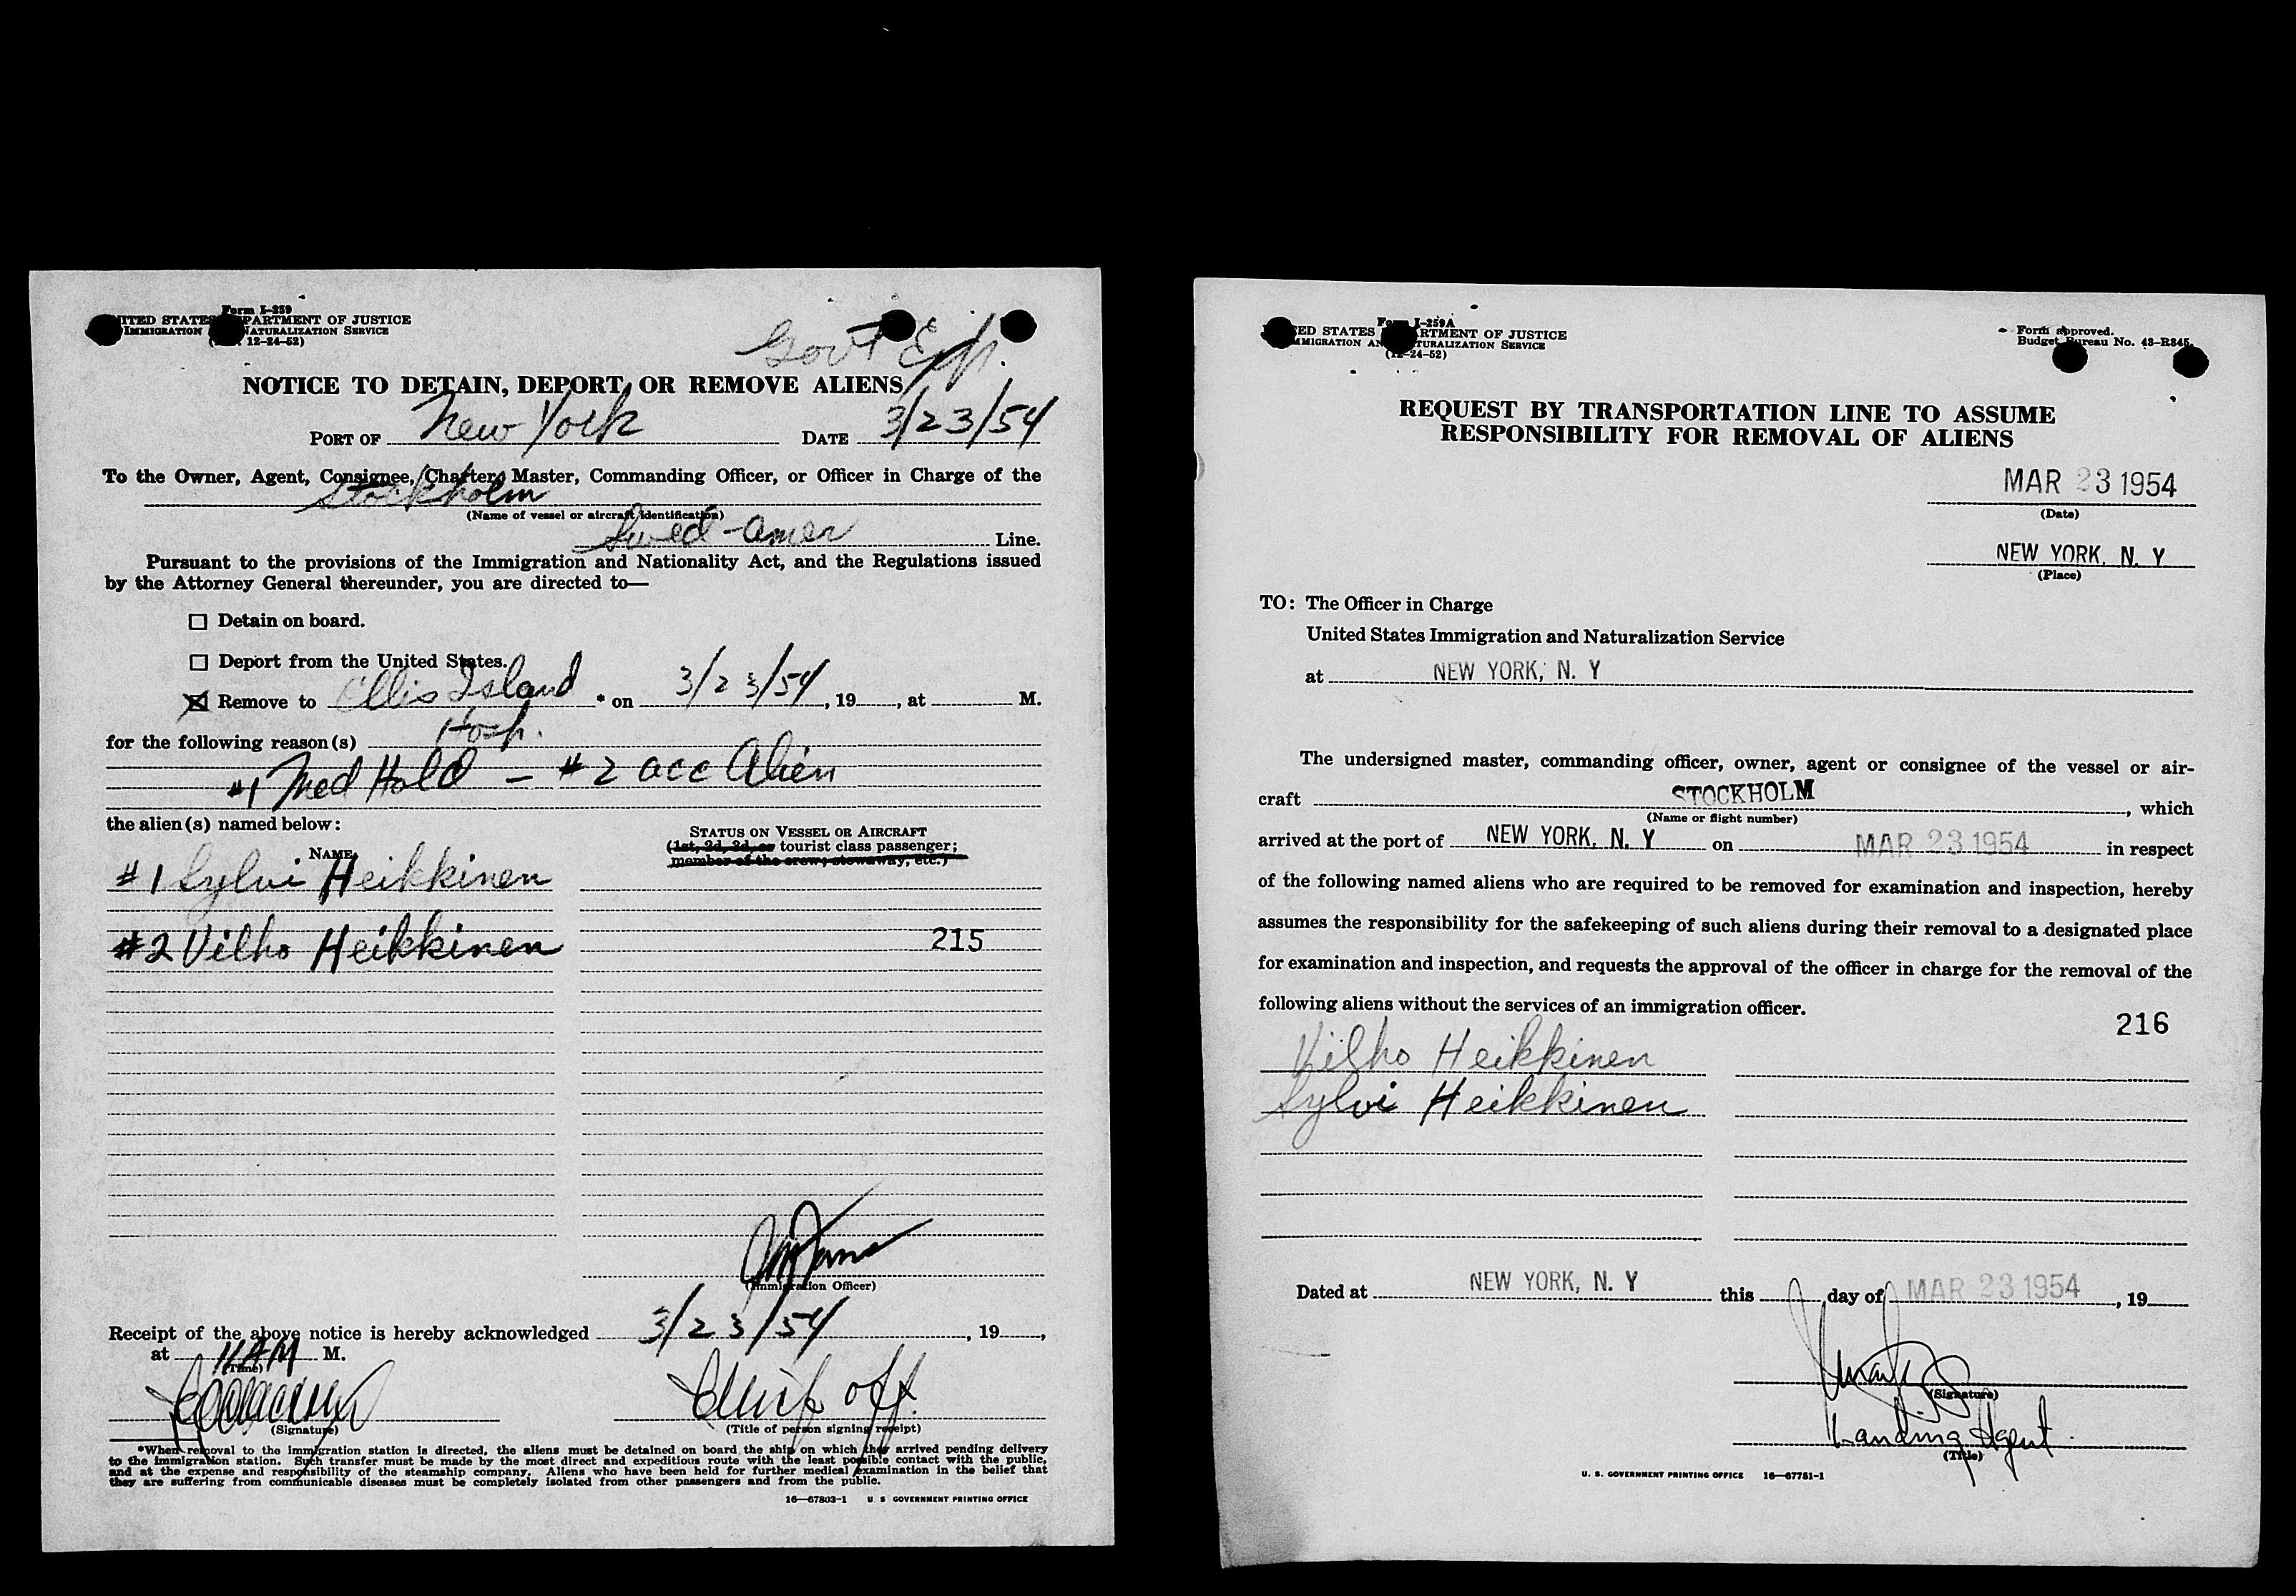 Form I-259
UNITED STATES DEPARTMENT OF JUSTICE
IMMIGRATION NATURALIZATION SERVICE
12-24-52)
Govt Exp.
NOTICE TO DETAIN, DEPORT, OR REMOVE ALIENS
PORT OF New York DATE 3/23/54
To the Owner, Agent, Consignee, Charter, Master, Commanding Officer, or Officer in Charge of the
Stockholm
(Name of vessel or aircraft identification)
Swed-Amer Line.
Pursuant to the provisions of the Immigration and Nationality Act, and the Regulations issued
by the Attorney General thereunder, you are directed to—
Detain on board.
Deport from the United States.
Remove to Ellis Island * on 3/23/54, 19, at M.
Hosp.
for the following reason(s)
#1 Med Hold - #2 acc Alien
the alien(s) named below:
NAME
STATUS ON VESSEL OR AIRCRAFT
(1st, 2d, 3d, or tourist class passenger;
member of the crew; stowaway, etc.)
#1 Sylvi Heikkinen
#2 Vilho Heikkinen
215
(Immigration Officer)
Receipt of the above notice is hereby acknowledged 3/23/54, 19,
at 11 AM M.
(Time)
Chief off.
(Signature)
(Title of person signing receipt)
*When removal to the immigration station is directed, the aliens must be detained on board the ship on which they arrived pending delivery
to the immigration station. Such transfer must be made by the most direct and expeditious route with the least possible contact with the public,
and at the expense and responsibility of the steamship company. Aliens who have been held for further medical examination in the belief that
they are suffering from communicable diseases must be completely isolated from other passengers and from the public.
16—67803-1 U S GOVERNMENT PRINTING OFFICE
Form I-259A
UNITED STATES DEPARTMENT OF JUSTICE
IMMIGRATION AND NATURALIZATION SERVICE
(12-24-52)
Form approved.
Budget Bureau No. 43-R345.
REQUEST BY TRANSPORTATION LINE TO ASSUME
RESPONSIBILITY FOR REMOVAL OF ALIENS
MAR 23 1954
(Date)
NEW YORK, N. Y
(Place)
TO: The Officer in Charge
United States Immigration and Naturalization Service
at NEW YORK, N. Y
The undersigned master, commanding officer, owner, agent or consignee of the vessel or air-
craft STOCKHOLM, which
(Name or flight number)
arrived at the port of NEW YORK, N. Y on MAR 23 1954 in respect
of the following named aliens who are required to be removed for examination and inspection, hereby
assumes the responsibility for the safekeeping of such aliens during their removal to a designated place
for examination and inspection, and requests the approval of the officer in charge for the removal of the
following aliens without the services of an immigration officer.
216
Vilho Heikkinen
Sylvi Heikkinen
Dated at NEW YORK, N. Y this day of MAR 23 1954, 19
(Signature)
Landing Agent
(Title)
U. S. GOVERNMENT PRINTING OFFICE 16—67751-1